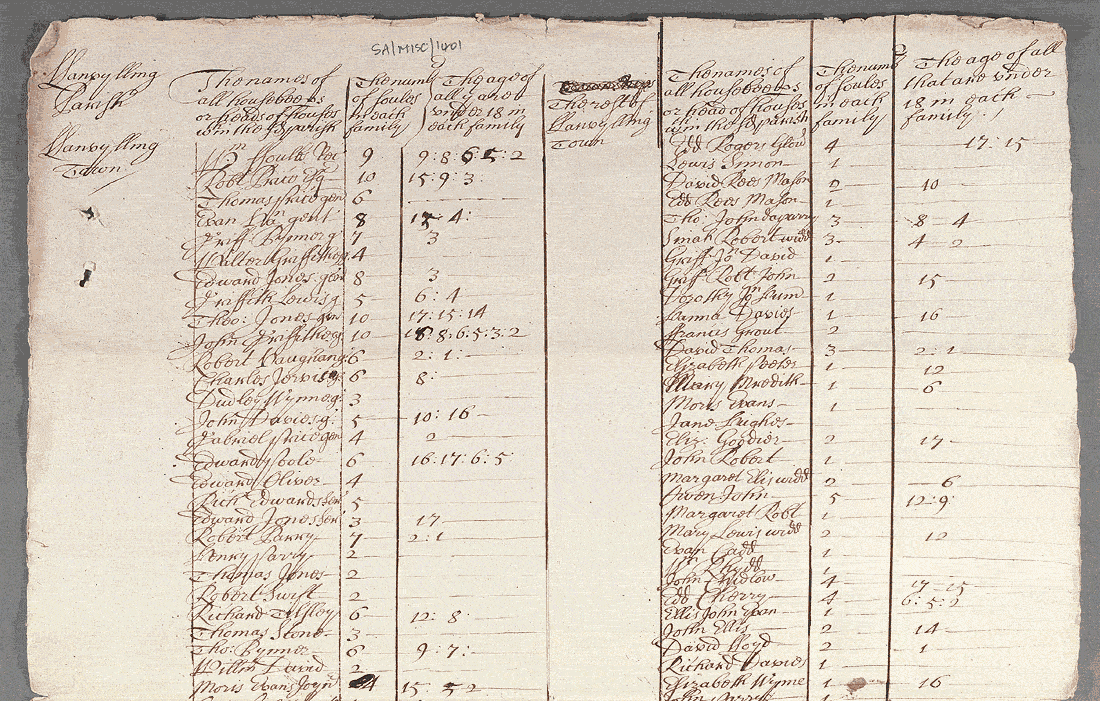 SA/MISC/1401
Llanvylling
Parish
Llanvylling
Town
The names of
all housekeepers
or heads of houses
w'in the sd parish
The numb
of soules
in each
family
The age of
all yt are
under 18 in
each family
Wm 9 9:8:6:5:2
Robt 10 15:9:3
Thomas gen 6
Evan gent 8 4:
Griff: 7 3
Griffiths 4
Edward Jones gen 8 3
Griffith Lewis g. 5 6:4
Thoo: Jones gen 10 17:15:14
John Griffithe g: 10 8:6:5:3:2
Robert Vaughan g: 6 2:1:
Charles Jervis g: 6 8:
Dudley Wynne g: 3
John Davies g: 5 10:16
Gabriel gen 4 2
Edward Poole 6 16:17:6:5
Edward Oliver 4
Richd Edwards 5
Edward Jones 3 17
Robert Parry 7 2:1
Henry Parry 2
Thomas Jones 2
Robert Swift 2
Richard Tilsley 6 12:8
Thomas Stone 3
Tho: Bynner 6 9:7:
Willm David 2
Moris Evans Joynr 4 15:5 2
The rest of
Llanvylling
Town
The names of
all housekeeprs
or head of houses
w'in the sd parish
The numb
of soules
in each
family
The age of all
that are under
18 in each
family:
Edd Rogers Glov 4 17:15
Lewis Simon 1
David Rees Mason 2 10
Edd Rees Mason 1
Tho: John daparry 3 8 4
Sinah Robert widd 3 4 2
Griff: Jo David 1
Griff: Robt John 2 15
Dorothy 1
Hanna Davies 1 16
Francis Grout 2
David Thomas 3 2:1
Elizabeth Peeter 1 12
Mary Mredith 1 6
Moris Evans 1
Jane Hughes
Eliz: Goodier 2 17
John Robert 1
Margaret Elis widd 2 6
Owen John 5 12:9:
Margaret Robt 1
Mary Lewis widd 2 12
Evan Cadd 1
Wm Rhydd 1
John Chidlow 4 17 15
Edd Cherry 4 6:5:2
Ellis John Evan 1
John Ellis 2 14
David lloyd 2 1
Richard Davies 1
Elizabeth Wynne 1 16
John